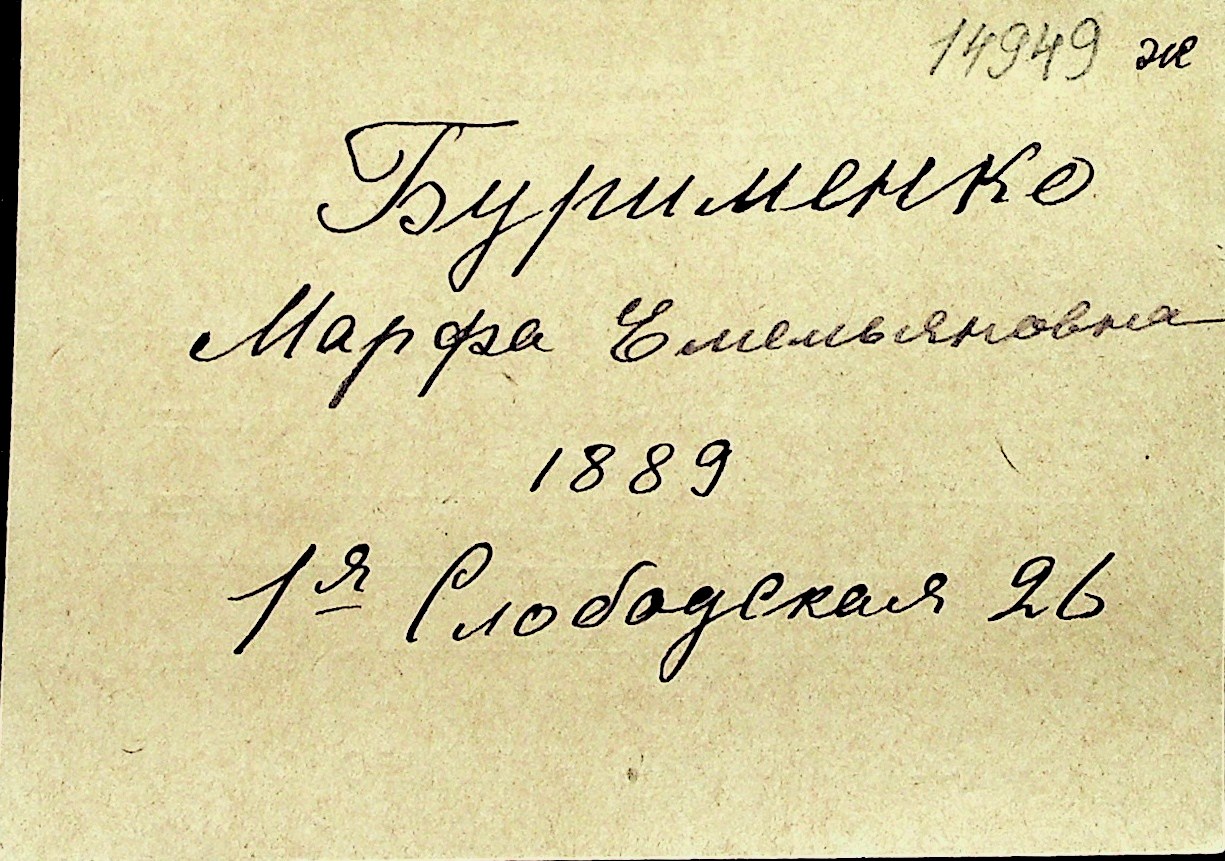 14949 ж
Бурименко
Марфа Емельяновна
1889
1я Слободская 26